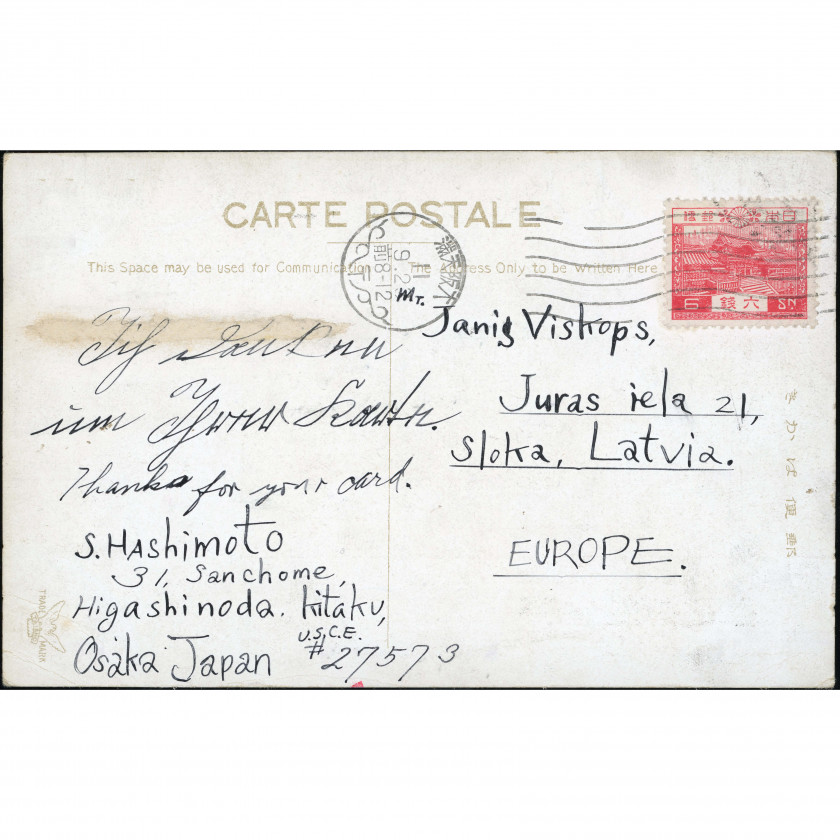 CARTE POSTALE
This Space may be used for Communication The Address Only to be Written Here
日本 郵便
6 六銭 SN
11
9.2
前8-12
MT.
Ich danken
um Ihrer Karte.
Thanks for your card.
S. HAshimoto
31, Sanchome,
Higashinoda. Kitaku,
Osaka Japan
U.S.C.E.
#27573
Janis Viskops,
Juras iela 21,
Sloka, Latvia.
EUROPE.
きかは便郵
TRADE MARK